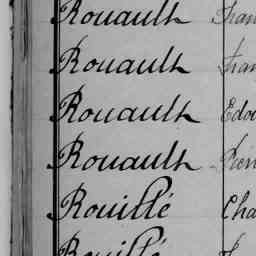 Rouault
Rouault
Rouault Edou
Rouault
Rouillé Cha
Rouillé